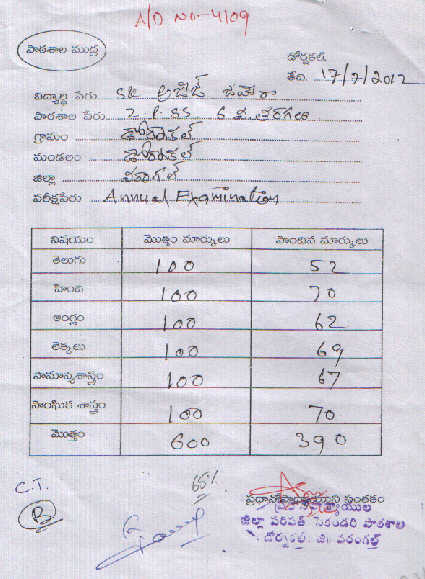 A/D No-4/09
పాఠశాల ముద్ర
డోర్నకల్
తేది. 17/7/2012
విద్యార్థి పేరు Sk అజీజ్
పాఠశాల పేరు Z.P.SS 6 వ తరగతి
గ్రామం డోర్నకల్
మండలం డోర్నకల్
జిల్లా వరంగల్
పరీక్షపేరు Annual Examination
విషయం మొత్తం మార్కులు పొందిన మార్కులు
తెలుగు 100 52
హిందీ 100 70
ఆంగ్లం 100 62
లెక్కలు 100 69
సామాన్యశాస్త్రం 100 67
సాంఘిక శాస్త్రం 100 70
మొత్తం 600 390
C.T. 65%
B
ప్రధానోపాధ్యాయుని సంతకం
జిల్లా పరిషత్ సెకండరి పాఠశాల
డోర్నకల్, జి. వరంగల్